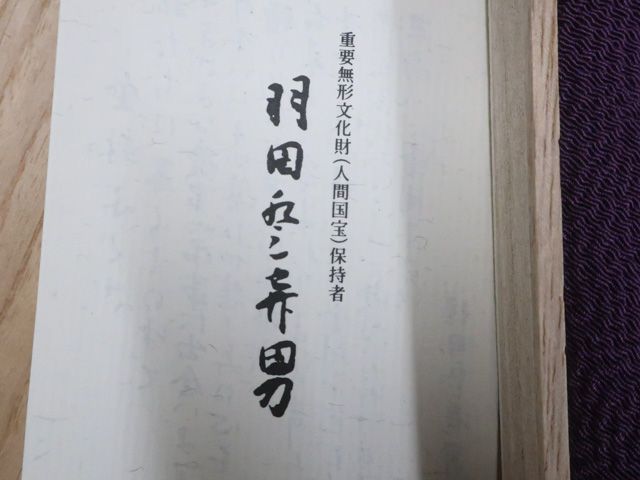 重要無形文化財(人間国宝)保持者
羽田登喜男